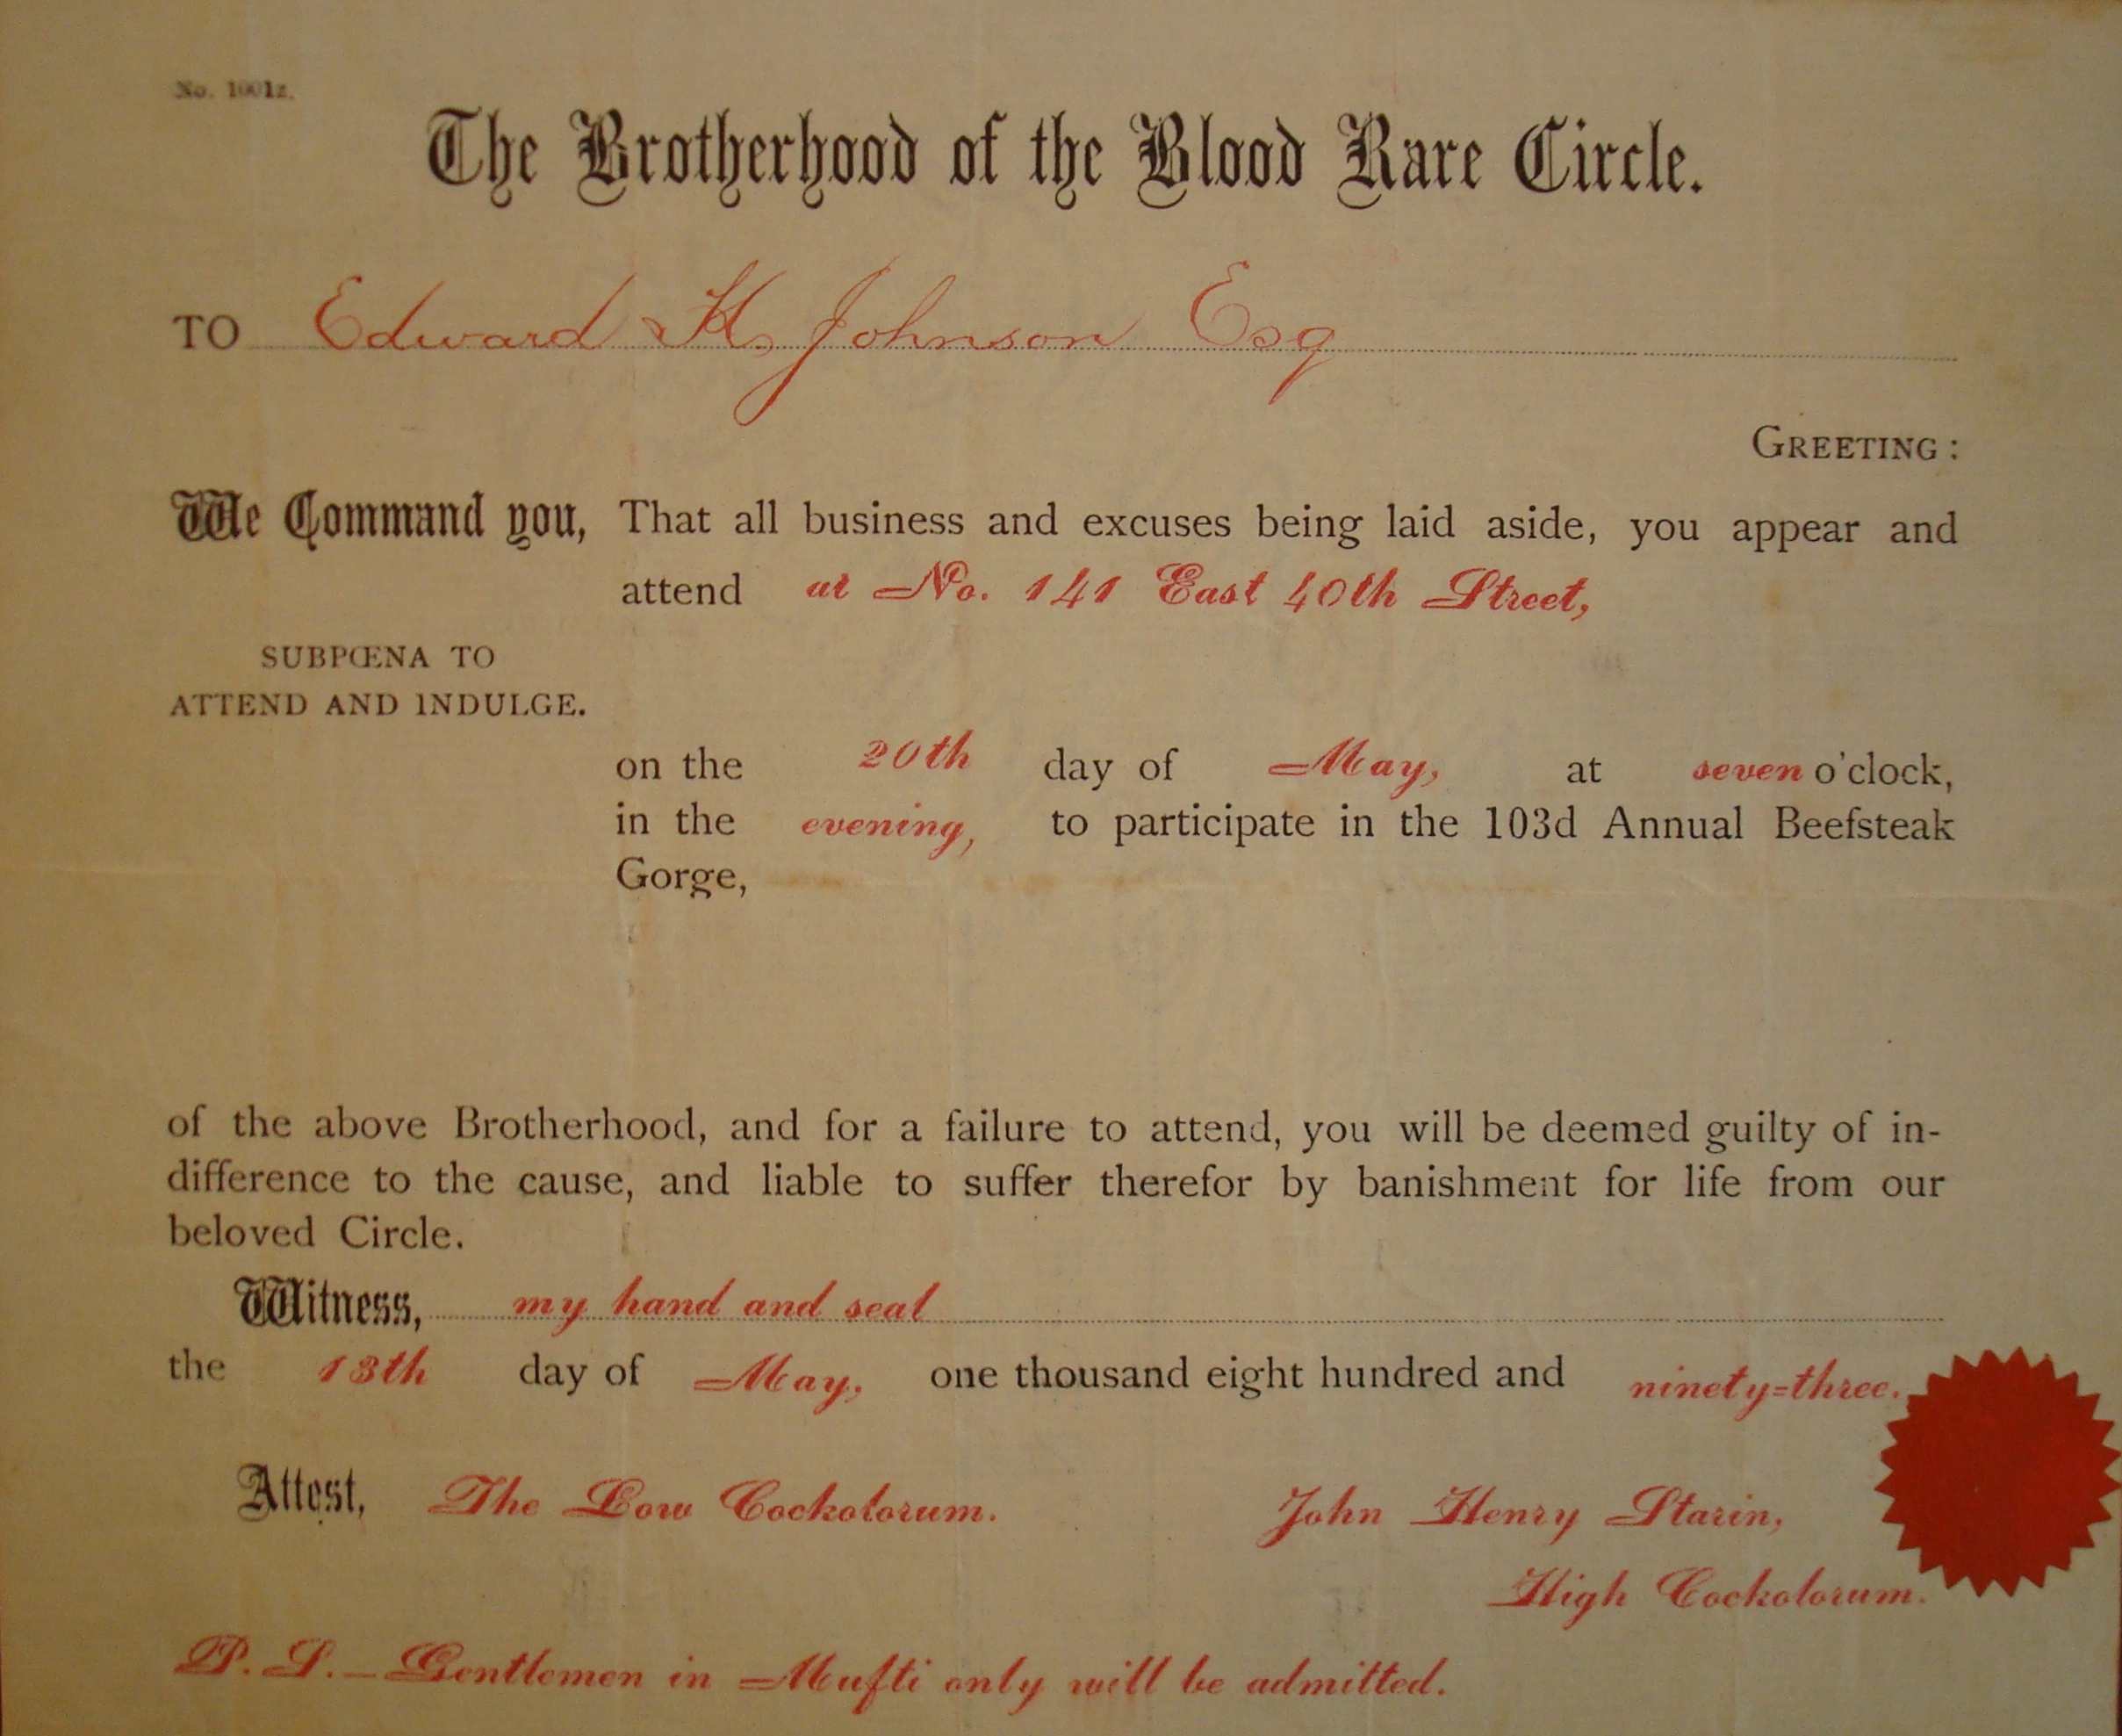 No. 1001z.
The Brotherhood of the Blood Rare Circle.
TO Edward H. Johnson Esq
GREETING:
We Command you, That all business and excuses being laid aside, you appear and
attend at No. 141 East 40th Street,
SUBPŒNA TO
ATTEND AND INDULGE.
on the 20th day of May, at seven o'clock,
in the evening, to participate in the 103d Annual Beefsteak
Gorge,
of the above Brotherhood, and for a failure to attend, you will be deemed guilty of in-
difference to the cause, and liable to suffer therefor by banishment for life from our
beloved Circle.
Witness, my hand and seal
the 13th day of May, one thousand eight hundred and ninety=three.
Attest, The Low Cockolorum. John Henry Starin,
High Cockolorum.
P. S.—Gentlemen in Mufti only will be admitted.